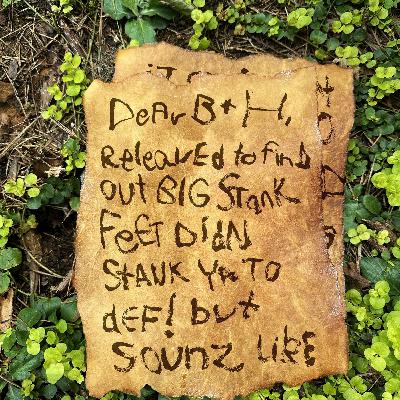 Dear B+H,
ReleavEd to find
out BIG Stank
FeeT DiDN
StANK Yu TO
dEF! but
Sounz LikE